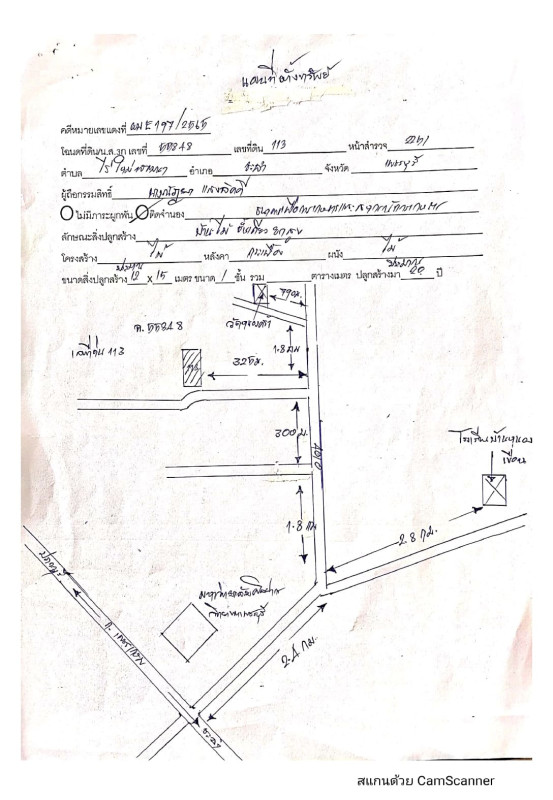 แผนที่ตั้งทรัพย์
คดีหมายเลขแดงที่ ผบE197/2565
โฉนดที่ดิน/น.ส.3ก เลขที่ 55348 เลขที่ดิน 113 หน้าสำรวจ
ตำบล ไร่ใหม่พัฒนา อำเภอ ชะอำ จังหวัด เพชรบุรี
ผู้ถือกรรมสิทธิ์
ไม่มีภาระผูกพัน ติดจำนอง ธนาคารเพื่อการเกษตรและสหกรณ์การเกษตร
ลักษณะสิ่งปลูกสร้าง บ้านไม้ ชั้นเดียว ยกสูง
โครงสร้าง ไม้ หลังคา กระเบื้อง ผนัง ไม้
ขนาดสิ่งปลูกสร้าง ประมาณ 12 x 15 เมตร ขนาด 1 ชั้น รวม ตารางเมตร ปลูกสร้างมา ประมาณ 20 ปี
790ม.
ฉ. 55348
1.8 กม
เลขที่ดิน 113
325ม.
300 ม.
4010
โรงเรียนบ้านหนองเขื่อน
1.8 กม
2.8 กม.
มหาวิทยาลัยศิลปากร
วิทยาเขตเพชรบุรี
2.4 กม.
ถ. เพชรเกษม
ชะอำ
สแกนด้วย CamScanner